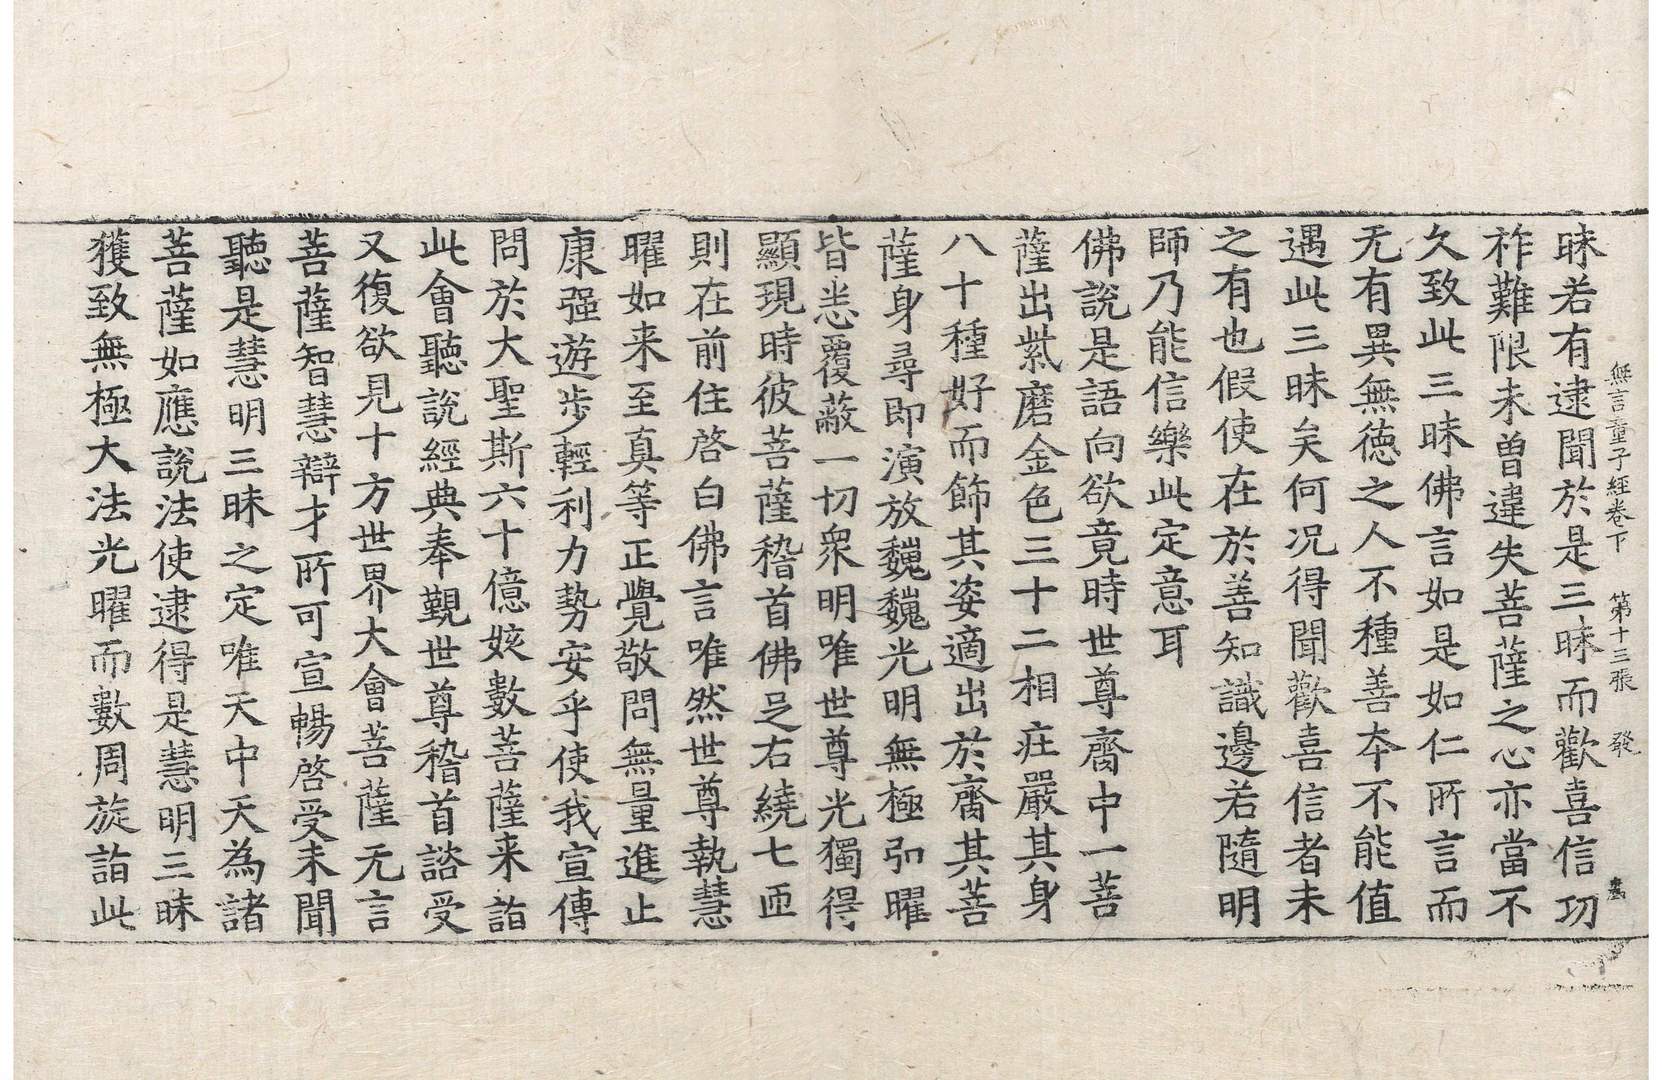 無言童子經卷下 第十三張 發
昧若有逮聞於是三昧而歡喜信功
祚難限未曽違失菩薩之心亦當不
久致此三昧佛言如是如仁所言而
无有異無德之人不種善夲不能值
遇此三昧矣何况得聞歡喜信者未
之有也假使在於善知識邊若隨明
師乃能信樂此定意耳
佛說是語向欲竟時世尊齎中一菩
薩出紫磨金色三十二相疘嚴其身
八十種好而飾其姿適出於齎其菩
薩身尋即演放巍巍光明無極弘曜
皆悉覆蔽一切衆明唯世尊光獨得
顯現時彼菩薩稽首佛足右繞七匝
則在前住啓白佛言唯然世尊執慧
曜如来至真等正覺敬問無量進止
康强遊步輕利力勢安乎使我宣傳
問於大聖斯六十億姟數菩薩来詣
此會聽說經典奉覲世尊稽首諮受
又復欲見十方世界大會菩薩无言
菩薩智慧辯才所可宣暢啓受未聞
聽是慧明三昧之定唯天中天為諸
菩薩如應說法使逮得是慧明三昧
獲致無極大法光曜而數周旋詣此